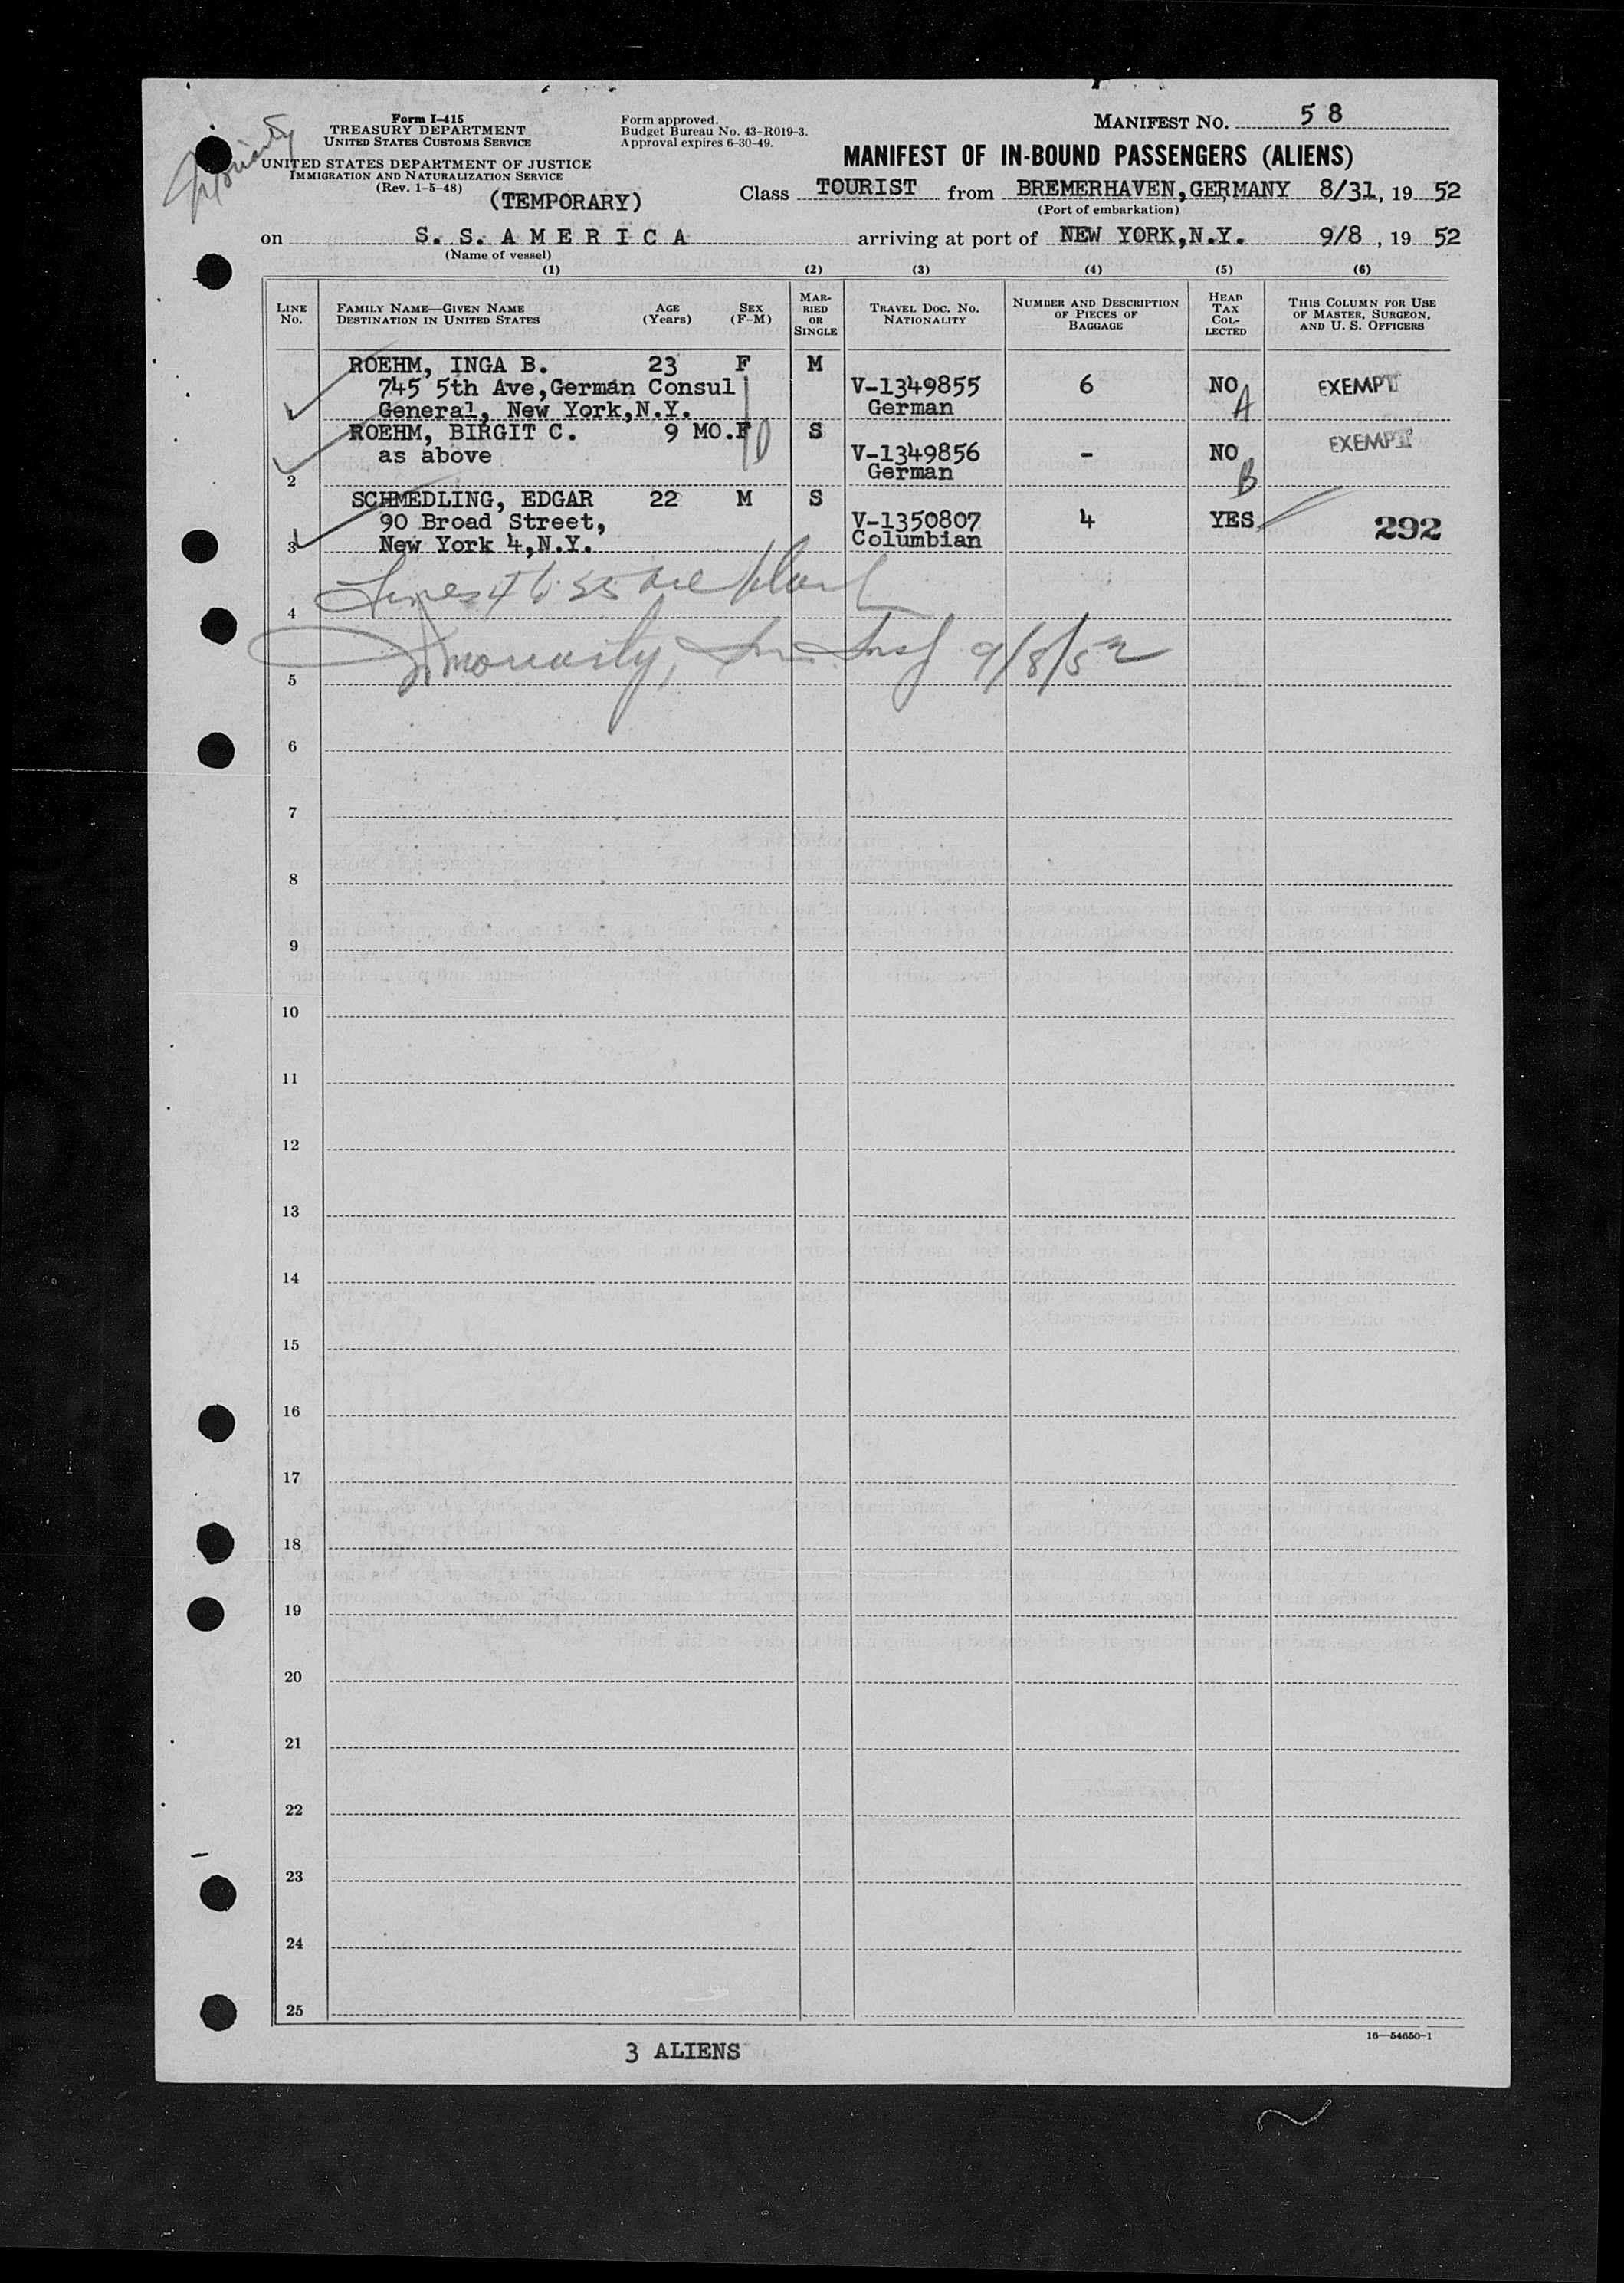 Moriarty
Form I-415
TREASURY DEPARTMENT
UNITED STATES CUSTOMS SERVICE
UNITED STATES DEPARTMENT OF JUSTICE
IMMIGRATION AND NATURALIZATION SERVICE
(Rev. 1-5-48)
(TEMPORARY)
Form approved.
Budget Bureau No. 43-R019-3.
Approval expires 6-30-49.
MANIFEST NO. 58
MANIFEST OF IN-BOUND PASSENGERS (ALIENS)
Class TOURIST from BREMERHAVEN,GERMANY 8/31, 19 52
(Port of embarkation)
on S. S. A M E R I C A arriving at port of NEW YORK,N.Y. 9/8, 19 52
(Name of vessel)
(1) (2) (3) (4) (5) (6)
LINE No. FAMILY NAME—GIVEN NAME DESTINATION IN UNITED STATES AGE (Years) SEX (F-M) MARRIED OR SINGLE TRAVEL DOC. NO. NATIONALITY NUMBER AND DESCRIPTION OF PIECES OF BAGGAGE HEAD TAX COLLECTED THIS COLUMN FOR USE OF MASTER, SURGEON, AND U. S. OFFICERS
ROEHM, INGA B. 23 F M
745 5th Ave,German Consul V-1349855 6 NO A EXEMPT
General, New York,N.Y. German
ROEHM, BIRGIT C. 9 MO.F S
as above V-1349856 - NO B EXEMPT
2 German
SCHMEDLING, EDGAR 22 M S
90 Broad Street, V-1350807 4 YES 292
3 New York 4,N.Y. Columbian
Lines 4 to 25 are blank
4
Moriarty, Im. Insp 9/8/52
5
6
7
8
9
10
11
12
13
14
15
16
17
18
19
20
21
22
23
24
25
16—54650-1
3 ALIENS